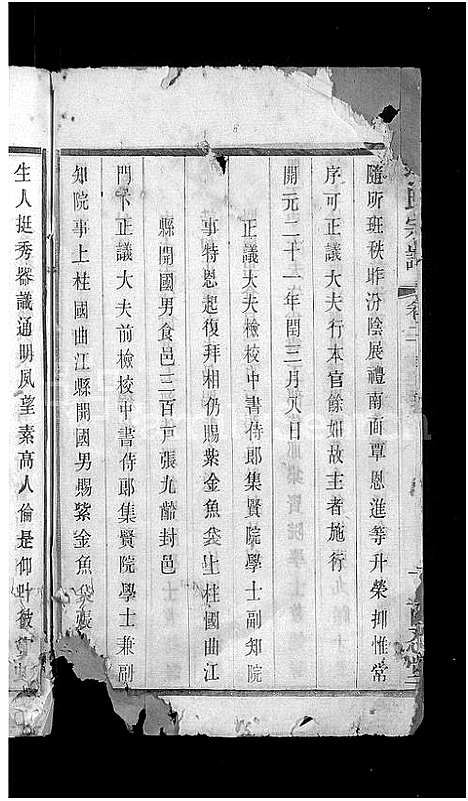 隨所班秩昨汾陰展禮南面覃恩進等升榮抑惟常
序可正議大夫行本官餘如故主者施行
開元二十一年閏三月八日
正議大夫檢校中書侍郎集賢院學士副知院
事特恩起復拜相仍賜紫金魚袋上柱國曲江
縣開國男食邑三百戶張九齡封邑
門下正議大夫前檢校中書侍郎集賢院學士兼副
知院事上柱國曲江縣開國男賜紫金魚袋張
生人挺秀器識通明風望素高人倫是仰叶彼
氏宗譜